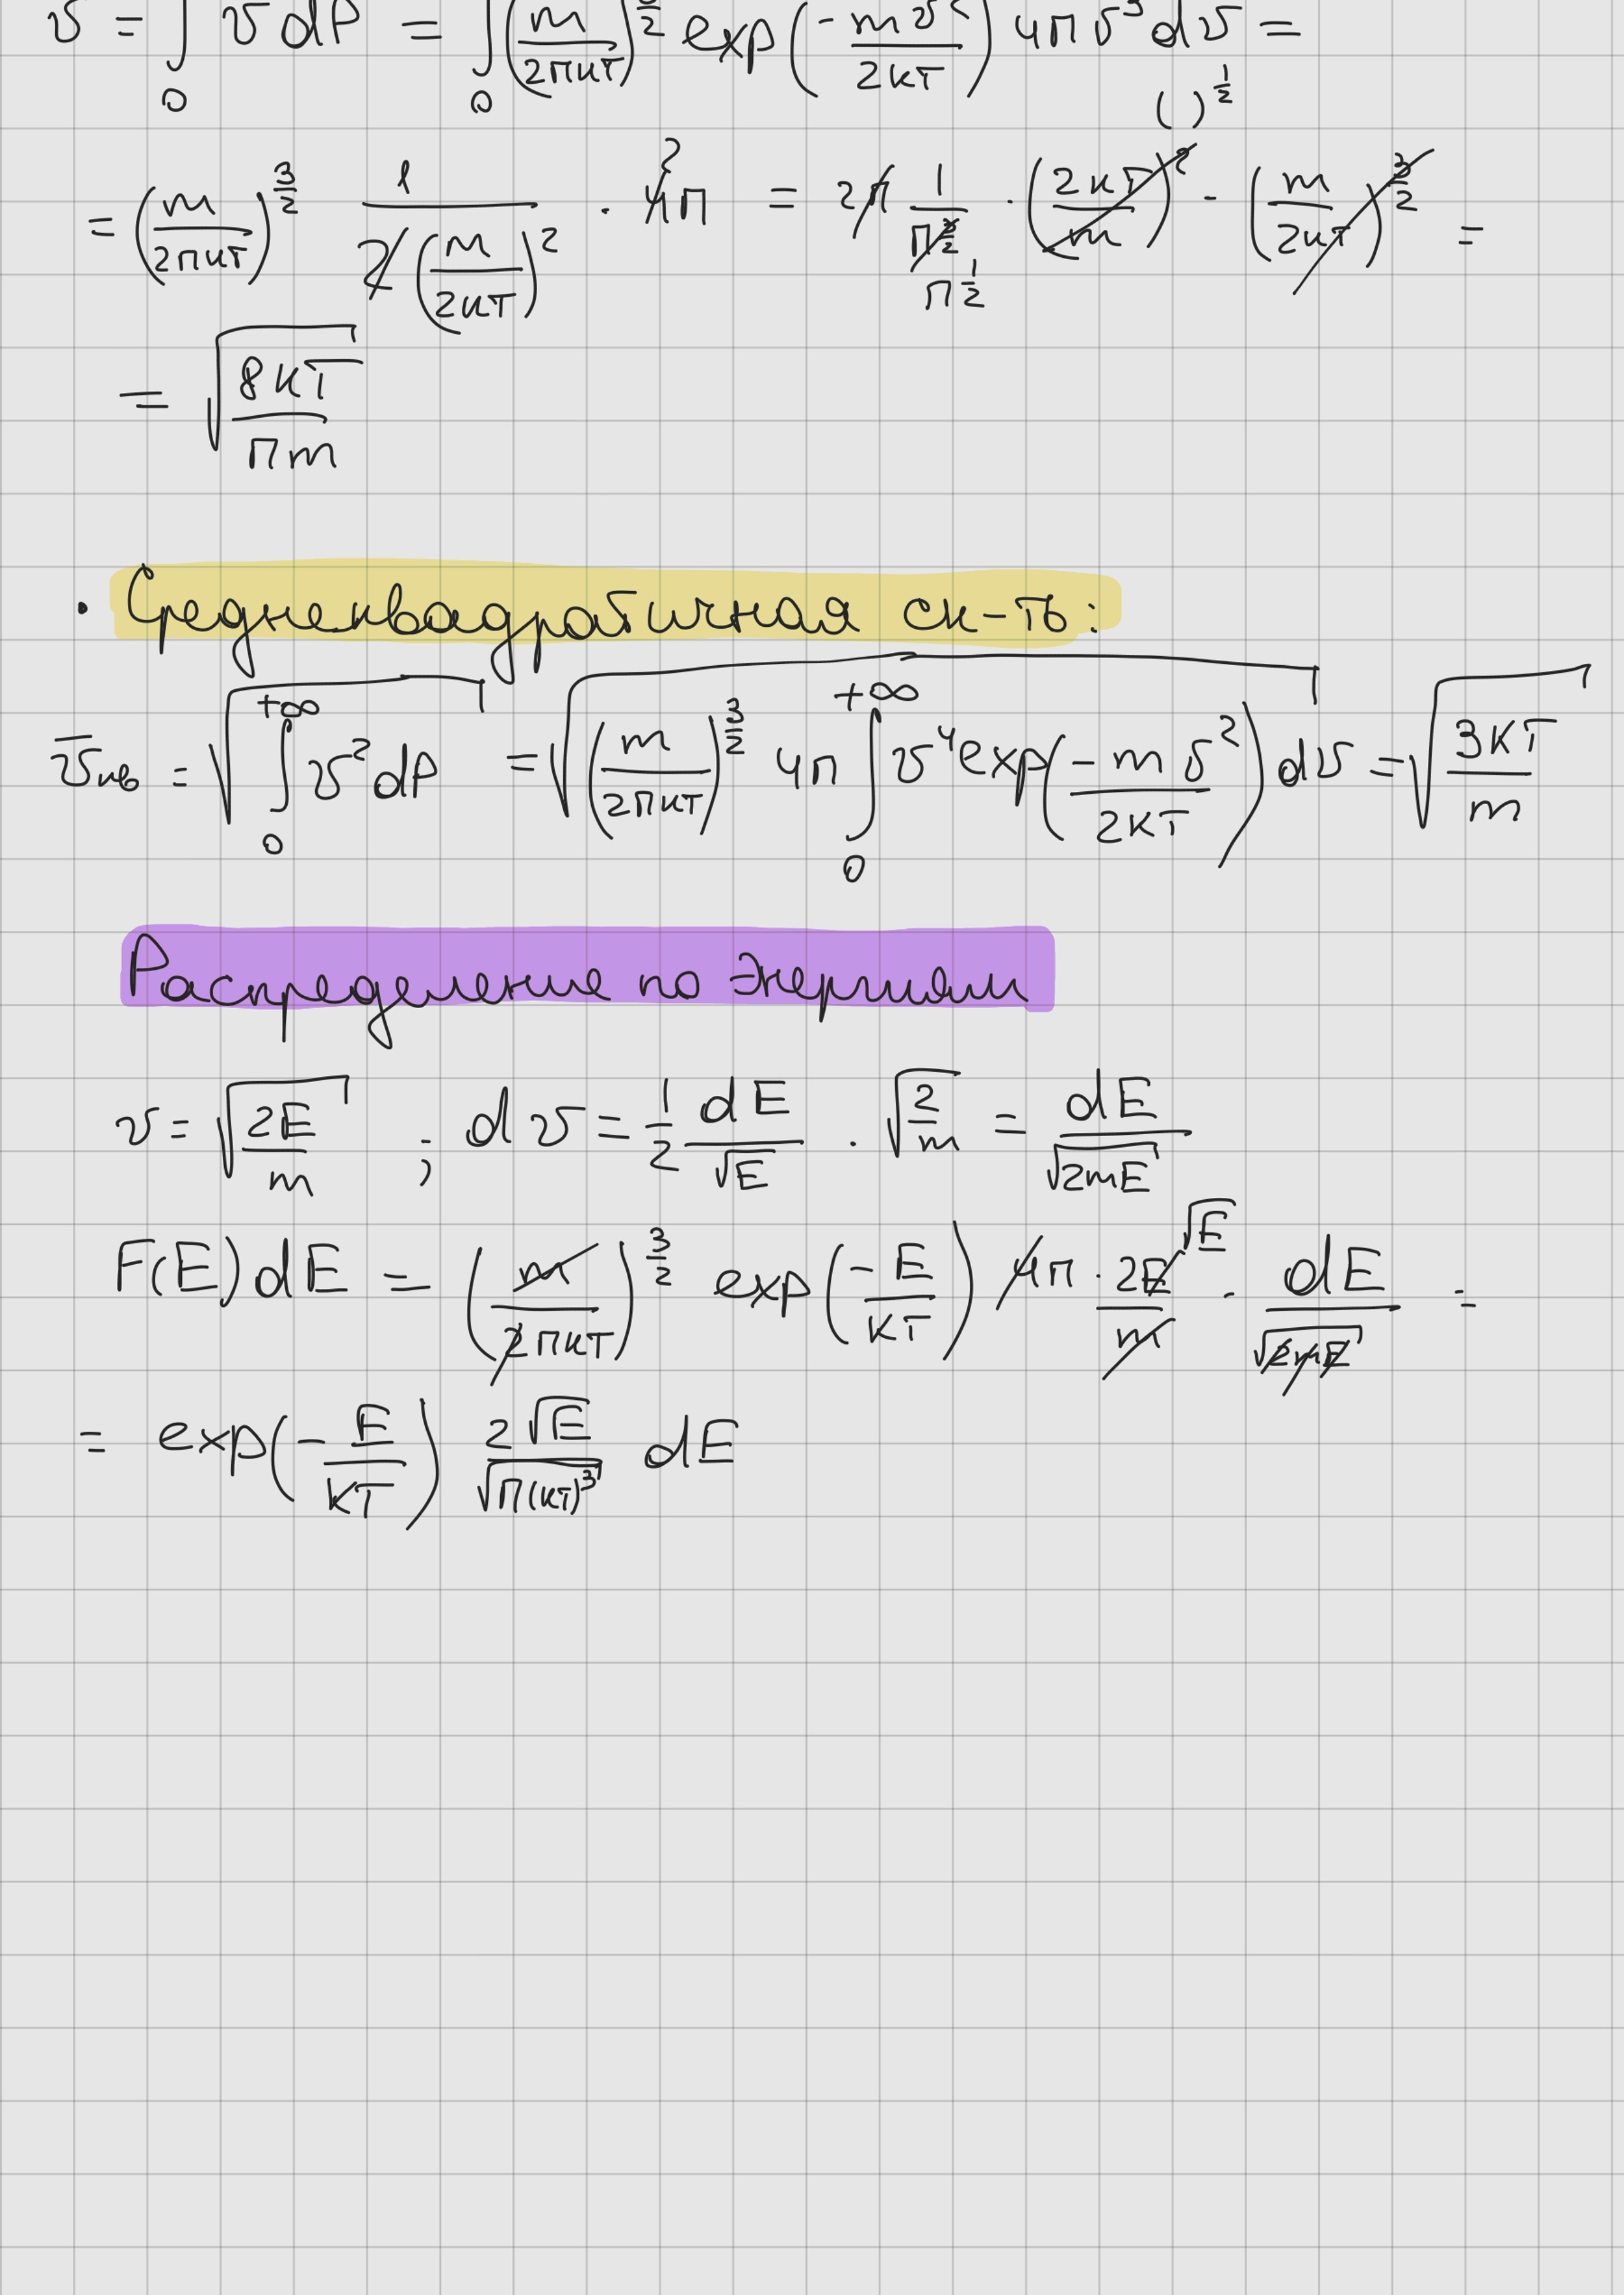 v = ∫₀ v dP = ∫₀ (m/2πkT)^(3/2) exp(-mv²/2kT) 4πv³ dv =
= (m/2πkT)^(3/2) 1/(2(m/2kT)²) · 4π = 2π 1/π^(3/2) · (2kT/m)² · (m/2kT)^(3/2) =
2 π^(1/2) ( )^(1/2)
= √(8kT/πm)
· Среднеквадратичная ск-ть:
v̄кв = √(∫₀^(+∞) v² dP) = √((m/2πkT)^(3/2) 4π ∫₀^(+∞) v⁴ exp(-mv²/2kT) dv) = √(3kT/m)
Распределение по энергиям
v = √(2E/m) ; dv = 1/2 dE/√E · √(2/m) = dE/√(2mE)
F(E)dE = (m/2πkT)^(3/2) exp(-E/kT) 4π · 2E/m · dE/√(2mE) =
√E
= exp(-E/kT) 2√E/√(π(kT)³) dE